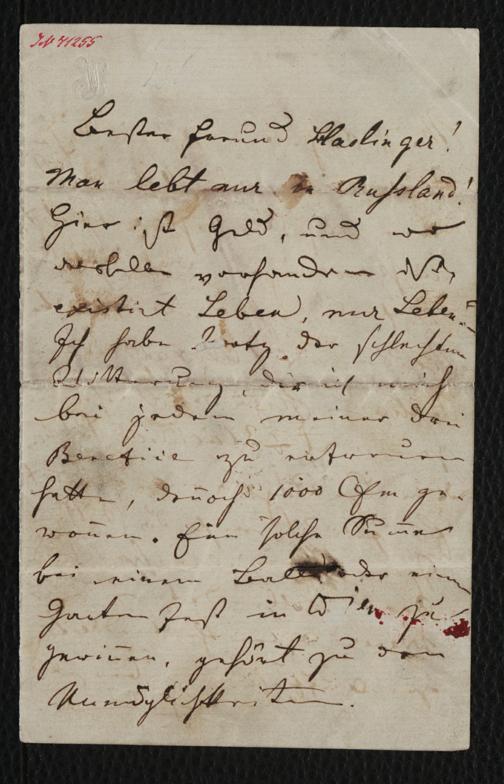 IN 71255
Bester Freund Haslinger!
Man lebt nur in Russland!
Hier ist Geld, und wo
dasselbe vorhanden ist,
existirt Leben, nur Leben!
Ich habe trotz der schlechten
Witterung, die ich mich
bei jedem meiner drei
Benefice zu erfreuen
hatte, dennoch 1000 Cfm ge-
wonnen. Eine solche Summe
bei einem Balle oder einem
Gartenfest in Wien zu
gewinnen, gehört zu den
Unmöglichkeiten.